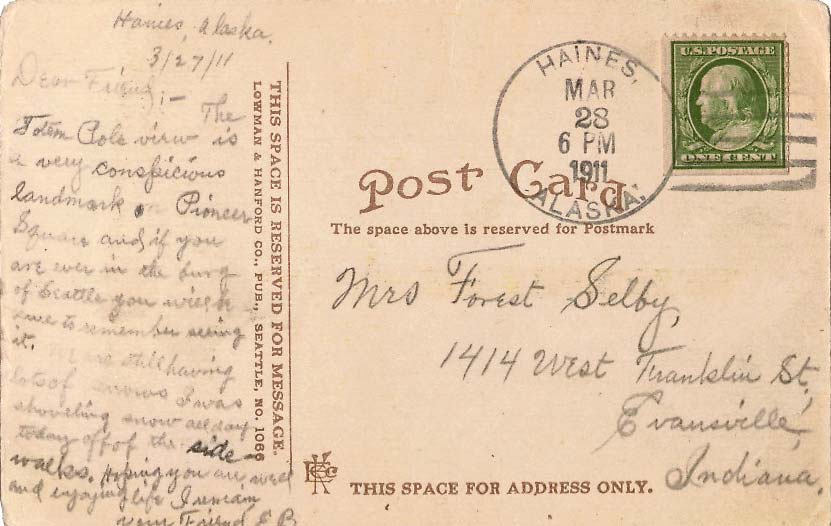 Haines, Alaska,
3/27/11
Dear Friend;-
The
Totem Pole view is
a very conspicious
landmark on Pioneer
Square and if you
are ever in the burg
of Seattle you will be
sure to remember seeing
it.
We are still having
lots of snows I was
shoveling snow all day
today off of the side-
walks. Hoping you are well
and enjoying life I remain
your Friend E.B.
THIS SPACE IS RESERVED FOR MESSAGE.
LOWMAN & HANFORD CO., PUB., SEATTLE, NO. 1066
HAINES,
MAR
28
6 PM
1911
ALASKA.
U.S. POSTAGE
ONE CENT
Post Card
The space above is reserved for Postmark
Mrs Forest Selby,
1414 West Franklin St,
Evansville,
Indiana,
THIS SPACE FOR ADDRESS ONLY.